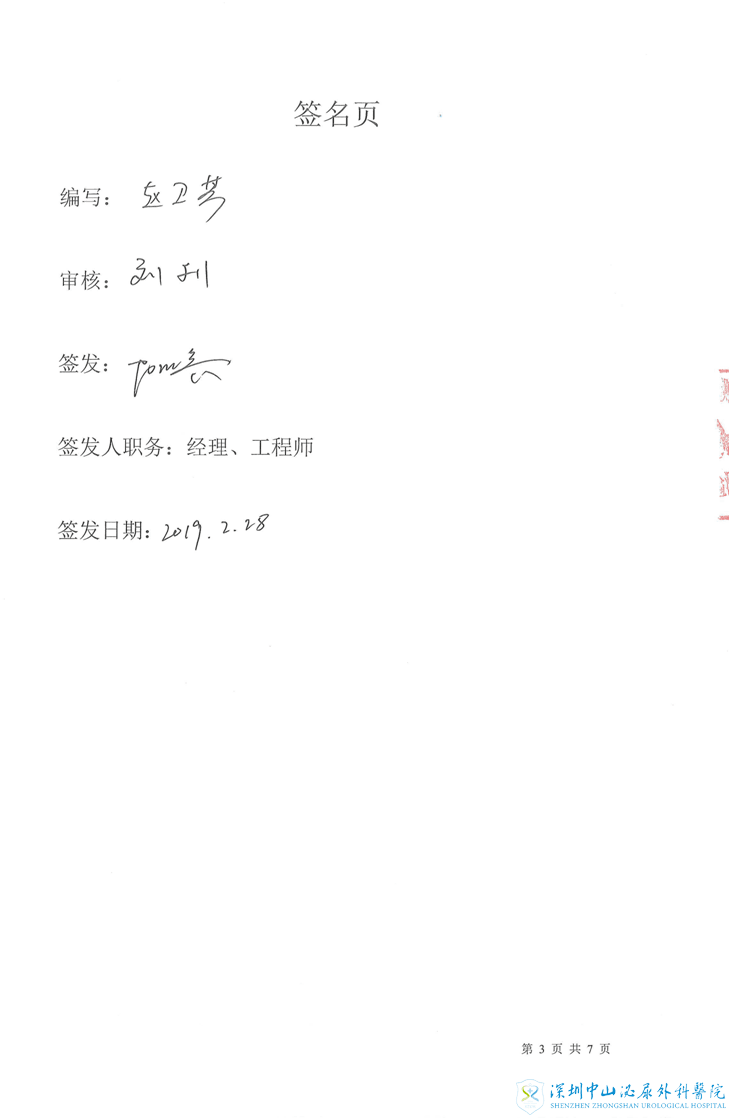 签名页
编写：赵卫芳
审核：刘
签发：
签发人职务：经理、工程师
签发日期：2019.2.28
第 3 页 共 7 页
深圳中山泌尿外科醫院
SHENZHEN ZHONGSHAN UROLOGICAL HOSPITAL